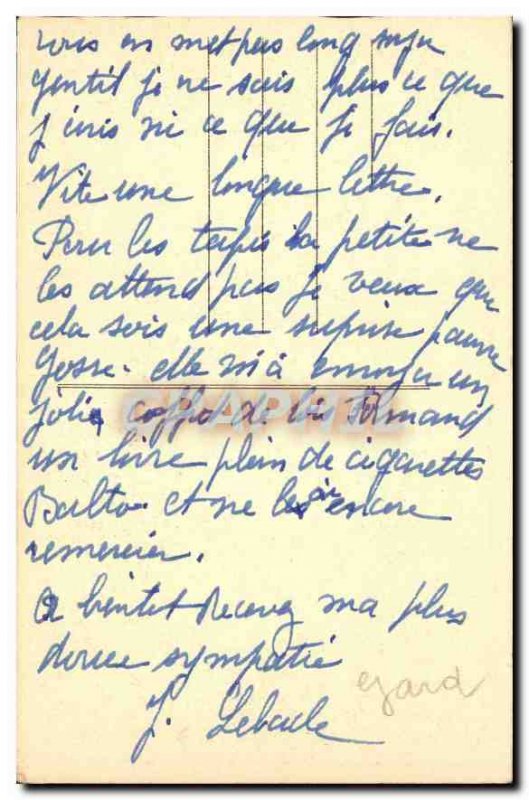 vous en met pas long mon
gentil je ne sais plus ce que
j'cris ni ce que je fais.
Vite une longue lettre.
Pour les tapis la petite ne
les attend pas je veux que
cela sois une surprise pauvre
gosse. elle m'à envoyer un
jolie coffret de
un livre plein de cigarettes
Balto et ne les ai encore
remercier.
A bientot Recevez ma plus
douce sympatie
J.
egard
CPAPHIL